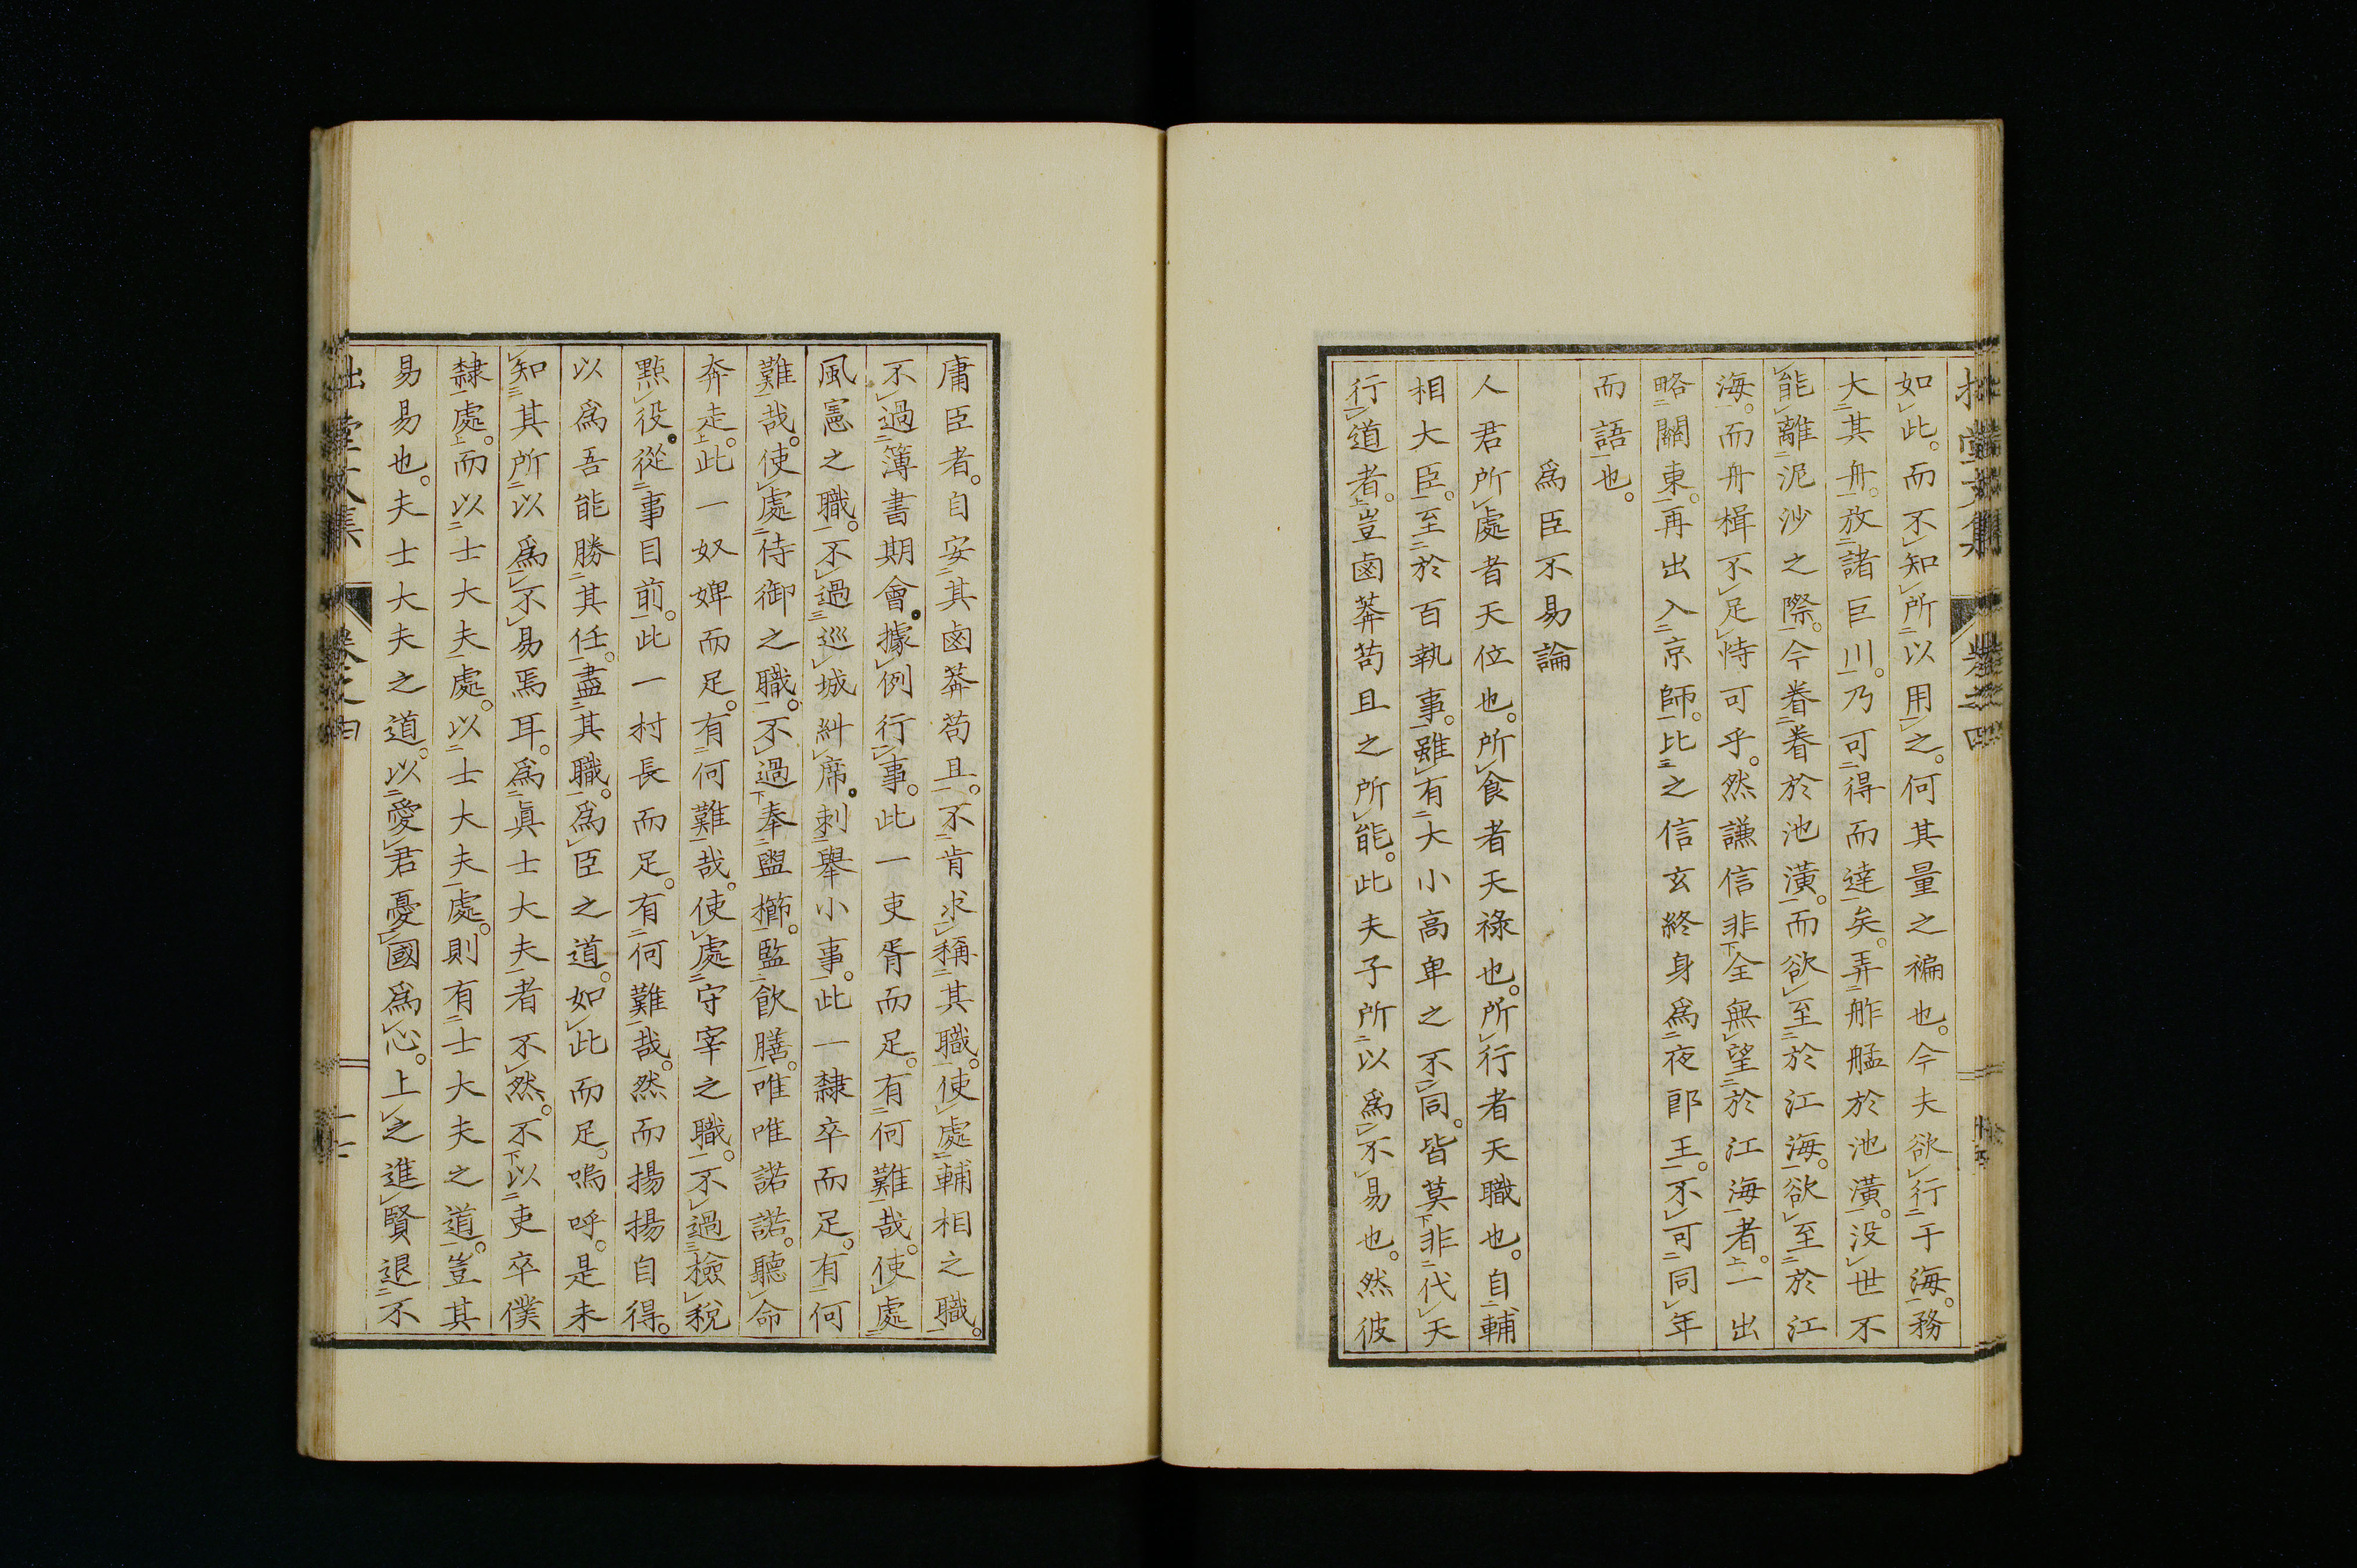 如此。而不知所以用之。何其量之褊也。今夫欲行于海。務
大其舟。放諸巨川。乃可得而達矣。弄舴艋於池潢。没世不
能離泥沙之際。今眷眷於池潢。而欲至於江海。欲至於江
海。而舟楫不足恃可乎。然謙信非全無望於江海者。一出
略關東。再出入京師。比之信玄終身為夜郎王。不可同年
而語也。
為臣不易論
人君所處者天位也。所食者天祿也。所行者天職也。自輔
相大臣。至於百執事。雖有大小高卑之不同。皆莫非代天
行道者。豈鹵莽苟且之所能。此夫子所以為不易也。然彼
庸臣者。自安其鹵莽苟且。不肯求稱其職。使處輔相之職。
不過簿書期會。據例行事。此一吏胥而足。有何難哉。使處
風憲之職。不過巡城糾席。刺舉小事。此一隸卒而足。有何
難哉。使處侍御之職。不過奉盥櫛。監飲膳。唯唯諾諾。聽命
奔走。此一奴婢而足。有何難哉。使處守宰之職。不過檢税
點役。從事目前。此一村長而足。有何難哉。然而揚揚自得。
以為吾能勝其任。盡其職。為臣之道。如此而足。嗚呼。是未
知其所以為不易焉耳。為真士大夫者不然。不以吏卒僕
隸處。而以士大夫處。以士大夫處。則有士大夫之道。豈其
易易也。夫士大夫之道。以愛君憂國為心。上之進賢退不
堂文集 卷之四